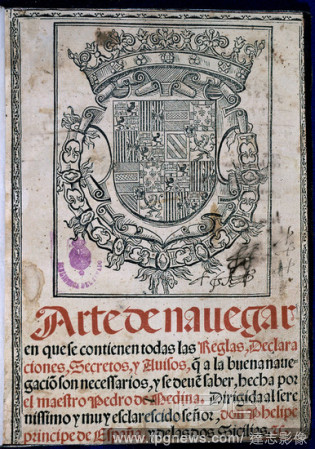 Arte de nauegar
en que se contienen todas las Reglas, Declara
ciones, Secretos, y Auisos, q̃ a la buena naue
gaciõ son necessarios, y se deuẽ saber, hecha por
el maestro Pedro de Medina. Dirigida al sere
nissimo y muy esclarescido señor, don Phelipe
principe de España, y delas dos Sicilias.
www.tpgnews.com / 達志影像